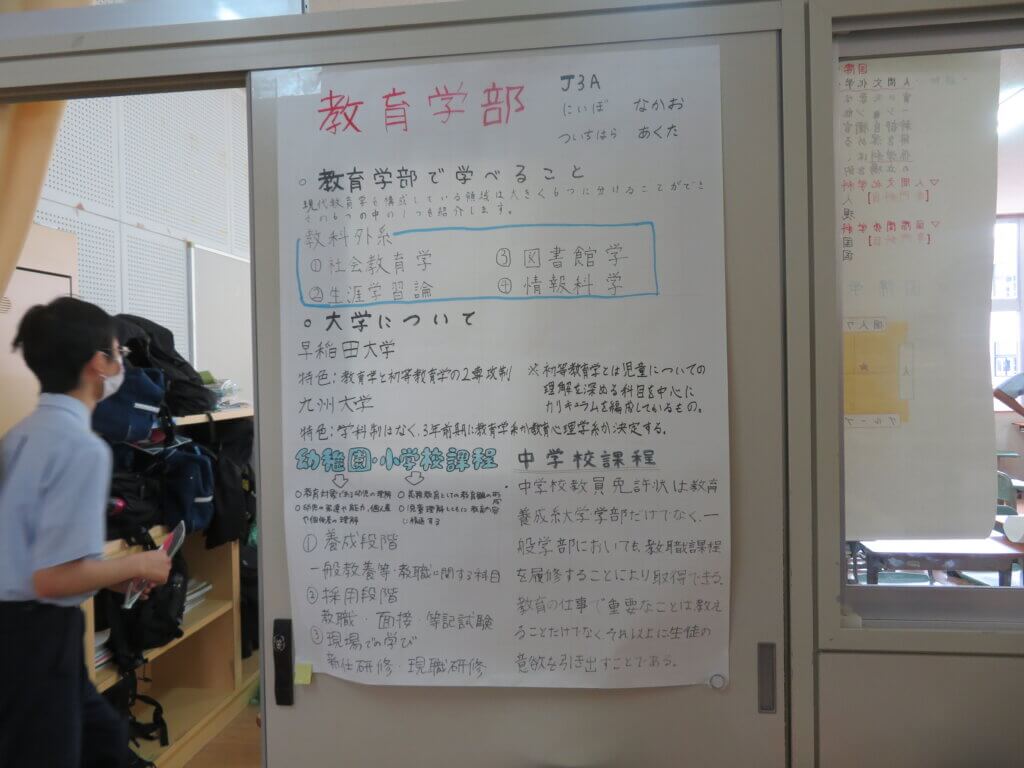 教育学部
J3A
にいぼ なかお
ついちはら あくた
○教育学部で学べること
現代教育学を構成している領域は大きく6つに分けることができ
その6つの中の1つを紹介します。
教科外系
①社会教育学
③図書館学
②生涯学習論
④情報科学
○大学について
早稲田大学
特色:教育学と初等教育学の2専攻制
※初等教育学とは児童についての
理解を深める科目を中心に
カリキュラムを編成しているもの。
九州大学
特色:学科制はなく、3年前期に教育学系か教育心理学系か決定する。
幼稚園・小学校課程
○教育対象である幼児の理解
○幼児の発達や能力、個人差
や個性差の理解
○義務教育としての教育観の形成
○児童理解とともに教育内容
①養成段階
一般教養等・教職に関する科目
②採用段階
教職・面接・筆記試験
③現場での学び
新任研修・現職研修
中学校課程
・中学校教員免許状は教育
養成系大学学部だけでなく、一
般学部においても、教職課程
を履修することにより取得できる。
教育の仕事で重要なことは教え
ることだけでなく、それ以上に生徒の
意欲を引き出すことである。